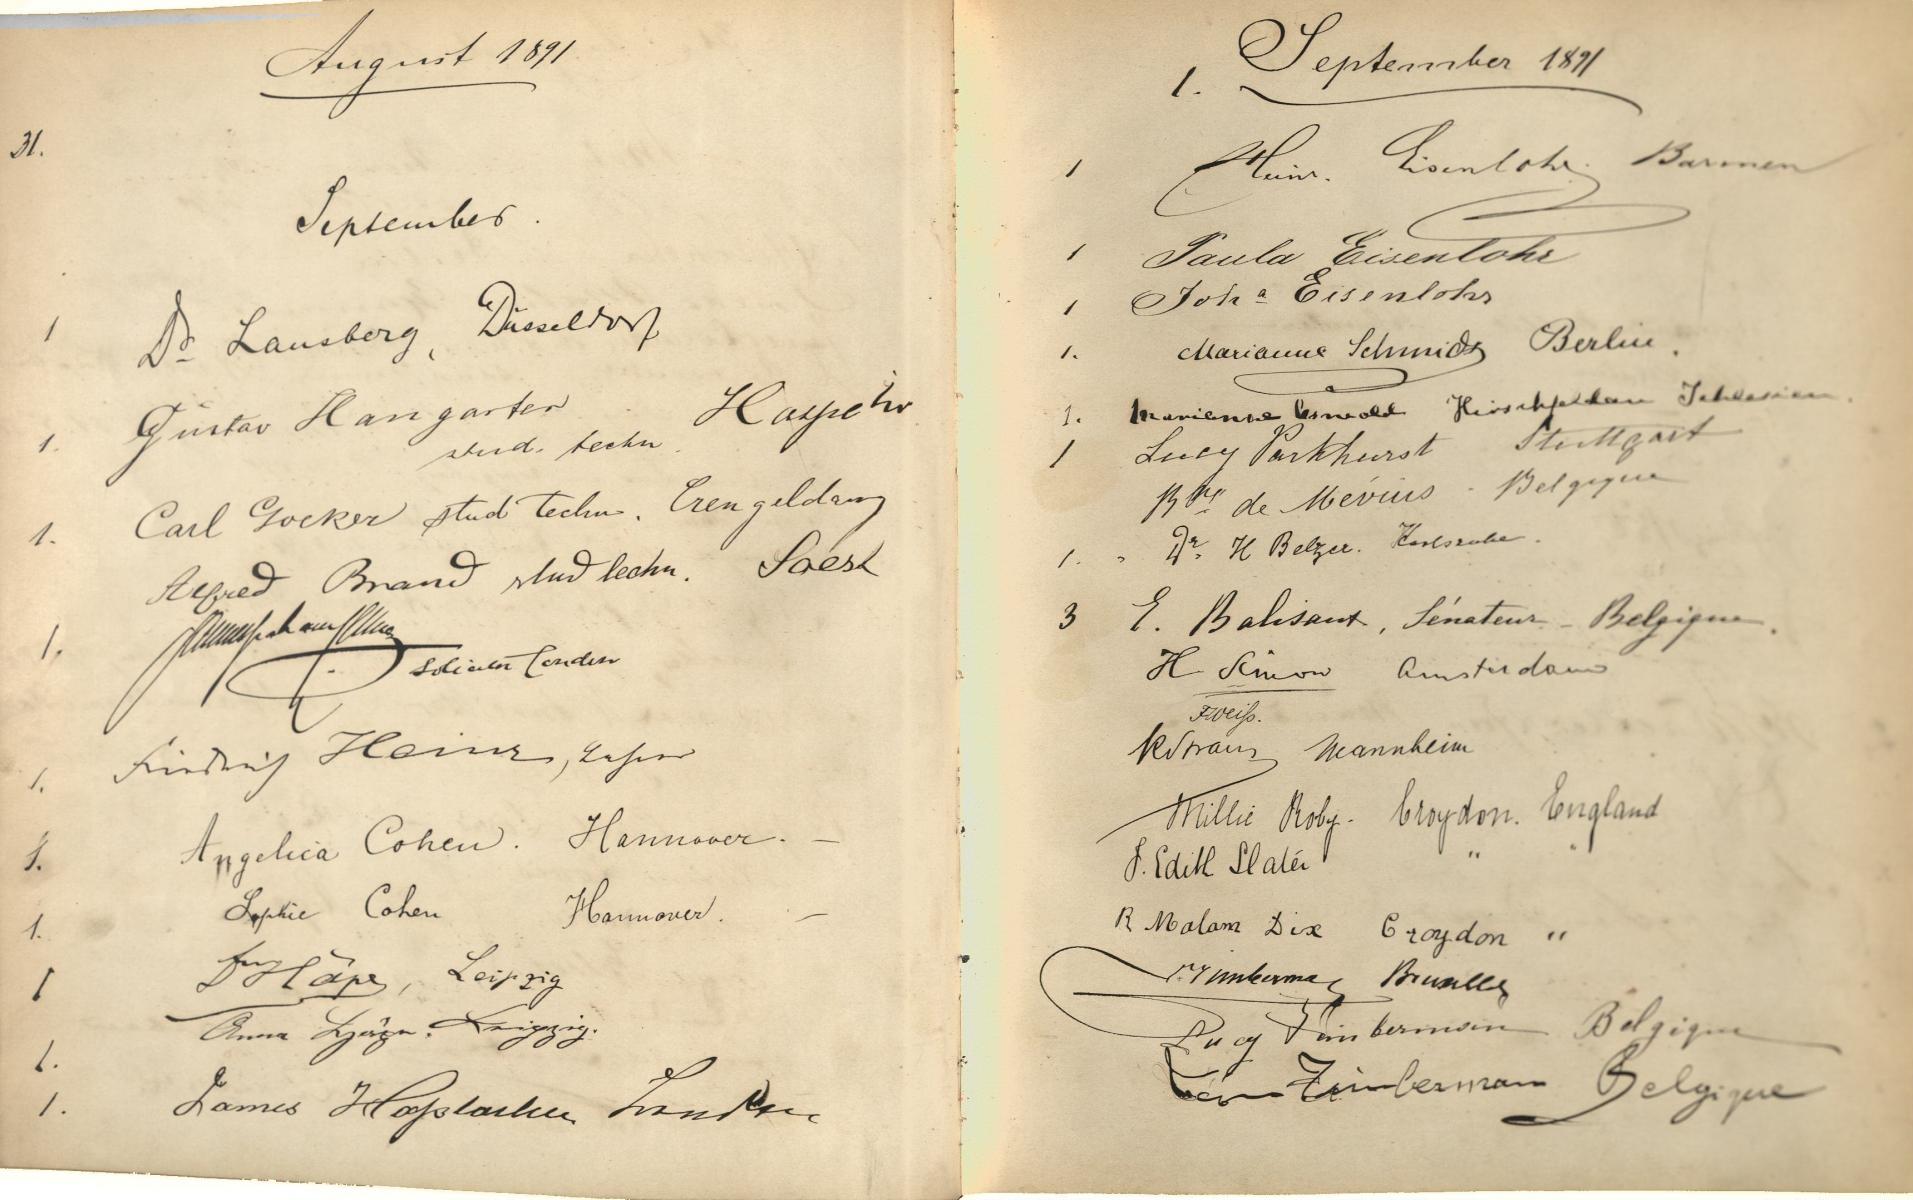 August 1891
31.
September.
1 Dr Lansberg, Düsseldorf
1. Gustav Hangarter Haspe i/w
stud. techn.
1. Carl Gocker stud techn. Crengeldanz
Alfred Brand stud techn. Soest
1.
Solicitor London
1. Friedrich Heinz,
1. Angelica Cohen. Hannover. –
1. Sophie Cohen Hannover. –
1 Dr Häpe, Leipzig
1. Anna Häpe. Leipzig.
1. James London
September 1891
1.
1 Heinr. Eisenlohr. Barmen
1 Paula Eisenlohr
1 Joha Eisenlohr
1. Marianne Schmidt Berlin.
1. Marianne Hirschfeldau Schlesien.
1 Lucy Parkhurst Stuttgart
Bne de Mévius - Belgique
1. " Dr. H Belzer. Karlsruhe.
3 E. Balisaux, Sénateur - Belgique.
H Simon Amsterdam
F Weiß.
K Straus Mannheim
Millie Roby. Croydon. England
J. Edith Slater " "
R Malam Dix Croydon "
Timberman Bruxelles
Lucy Timberman Belgique
Léon Timberman Belgique